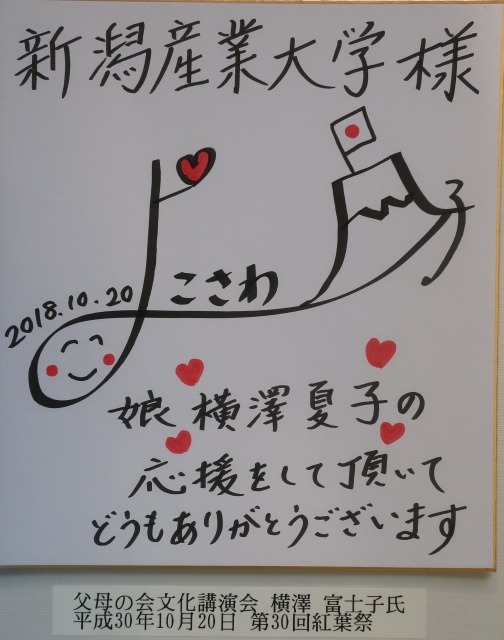 新潟産業大学様
よこさわ
子
2018.10.20
娘 横澤夏子の
応援をして頂いて
どうもありがとうございます
父母の会文化講演会 横澤 富士子氏
平成30年10月20日 第30回紅葉祭